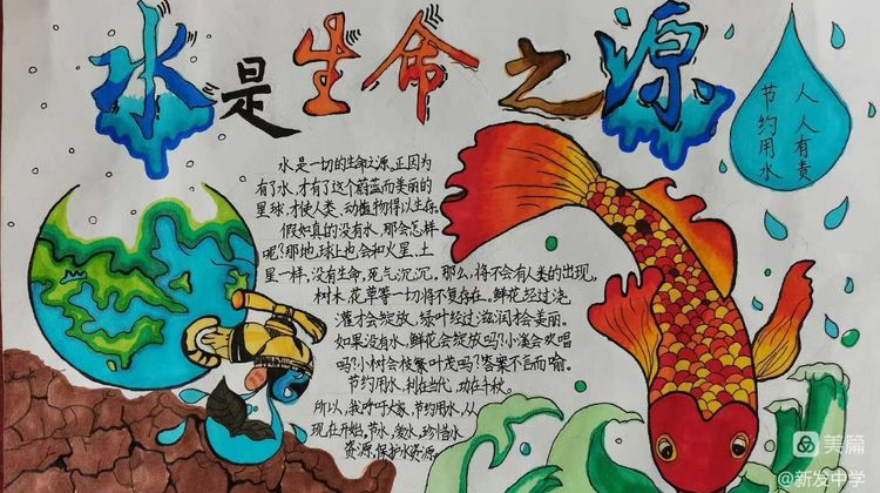 水是生命之源
节约用水
人人有责
水是一切的生命之源。正因为
有了水,才有了这个蔚蓝而美丽的
星球,才使人类、动植物得以生存。
假如真的没有水,那会怎样
呢?那地球上也会和火星、土
星一样,没有生命,死气沉沉。那么,将不会有人类的出现,
树木、花草等一切将不复存在。鲜花经过浇
灌才会绽放,绿叶经过滋润才会美丽。
如果没有水,鲜花会绽放吗?小溪会欢唱
吗?小树会枝繁叶茂吗?答案不言而喻。
节约用水,利在当代,功在千秋。
所以,我呼吁大家,节约用水,从
现在开始,节水,爱水,珍惜水
资源,保护水资源。
美篇
@新发中学